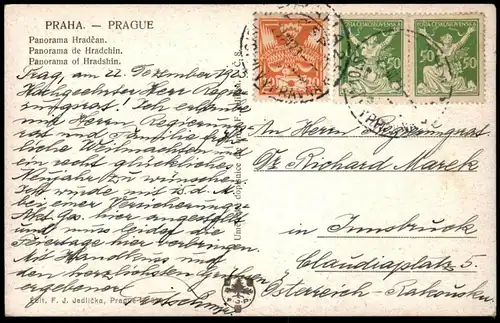 PRAHA. — PRAGUE
Panorama Hradčan.
Panorama de Hradchin.
Panorama of Hradshin.
Prag, am 22. Dezember 192
Hochgeehrter Herr Regie-
rungsrat! Ich erlaube
mir Herrn Regierungs-
rat und Familie fröh-
liche Weihnachten und
ein recht glückliches
Neujahr zu wünschen.
Ich wurde mit
bei einer Versicherungs-
Akt. Ges. hier angestellt
und muss leider die
Feiertage hier verbringen.
Mit Handkuss und
den herzlichsten Grüssen
ergebener
Edit. F. J. Jedlička, Prague
An Herrn Regierungsrat
Dr Richard Marek
in Innsbruck
Claudiaplatz 5.
Österreich Rakousko
20
ČESKOSLOVENSKÁ
50
50
ČESKOSLOVENSKÁ
50
50